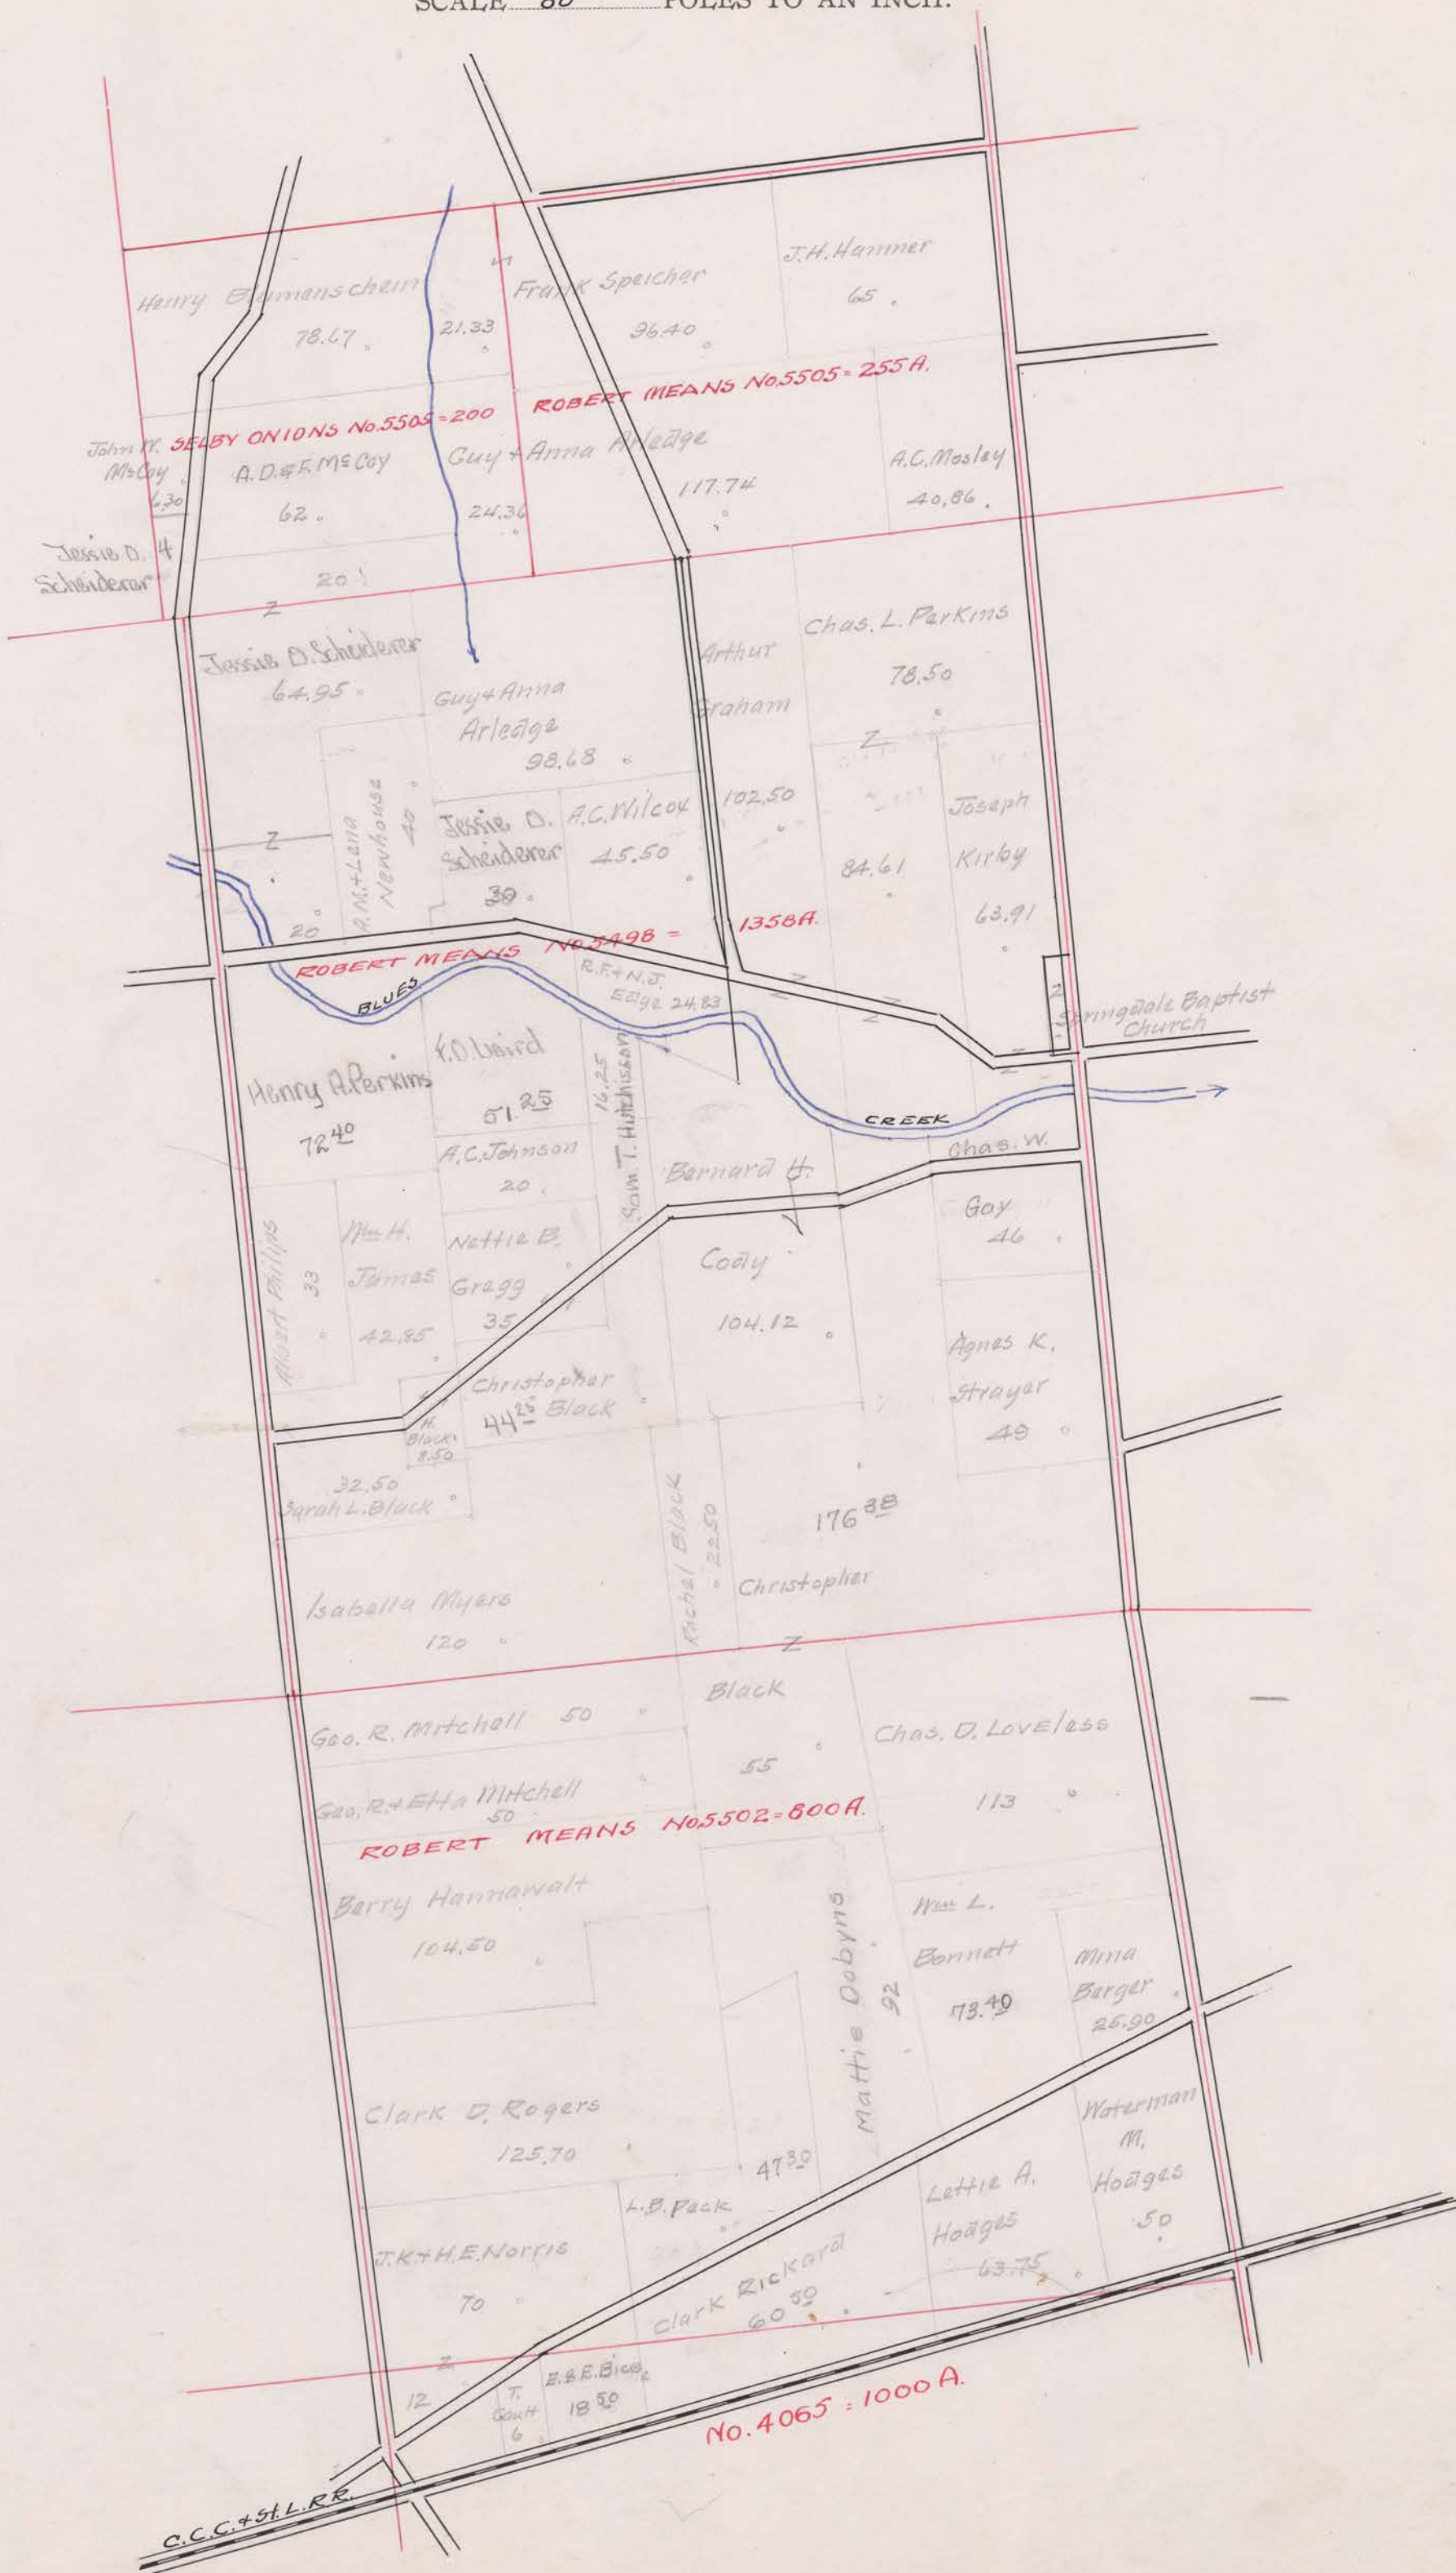 SCALE 80 POLES TO AN INCH.
J.H. Hamner
65
Henry Blumenschein
78.67
21.33
Frank Speicher
96.40
SELBY ONIONS No. 5505=200
ROBERT MEANS No. 5505=255 A.
John W.
McCoy
6.30
A.D. & F. McCoy
62
Guy + Anna Arledge
24.36
117.74
A.C. Mosley
40.86
Jessie D. 4
Scheiderer
20
Z
Jessie D. Scheiderer
64.95
Guy + Anna
Arledge
98.68
Arthur
Graham
102.50
Chas. L. Perkins
78.50
Z
A.M. + Lena
Newhouse
40
Jessie D.
Scheiderer
30
A.C. Wilcox
45.50
84.61
Joseph
Kirby
63.91
Z
20
ROBERT MEANS No. 5498 = 1358 A.
BLUES
R.F. + N.J.
Edge 24.83
Z
Z
Z
Z
Springdale Baptist
Church
Henry A. Perkins
72 40
F.D. Laird
51 25
16.25
Sam T. Hutchisson
A.C. Johnson
20
CREEK
Bernard H.
Cody
104.12
Chas. W.
Gay
46
Albert Philips
33
Wm H.
James
42.85
Nettie B.
Gregg
35
Christopher
44 25 Black
H.
Black
8.50
Agnes K.
Strayer
49
32.50
Sarah L. Black
Rachel Black
22.50
176 38
Christopher
Isabella Myers
120
Z
Black
55
Geo. R. Mitchell 50
Chas. D. LovEless
113
Geo. R. + Etta Mitchell
50
ROBERT MEANS No. 5502=800 A.
Berry Hannawalt
104.50
Mattie Dobyns
92
Wm L.
Bonnett
73.40
Mina
Barger
26.90
Clark D. Rogers
125.70
47 30
L.B. Peck
Lettie A.
Hodges
63.75
Waterman
M.
Hodges
50
J.K. + H.E. Norris
70
Clark Rickard
60 50
Z
12
T.
Gault
6
E. & E. Bice
18 50
No. 4065 = 1000 A.
C.C.C. + St. L. R.R.